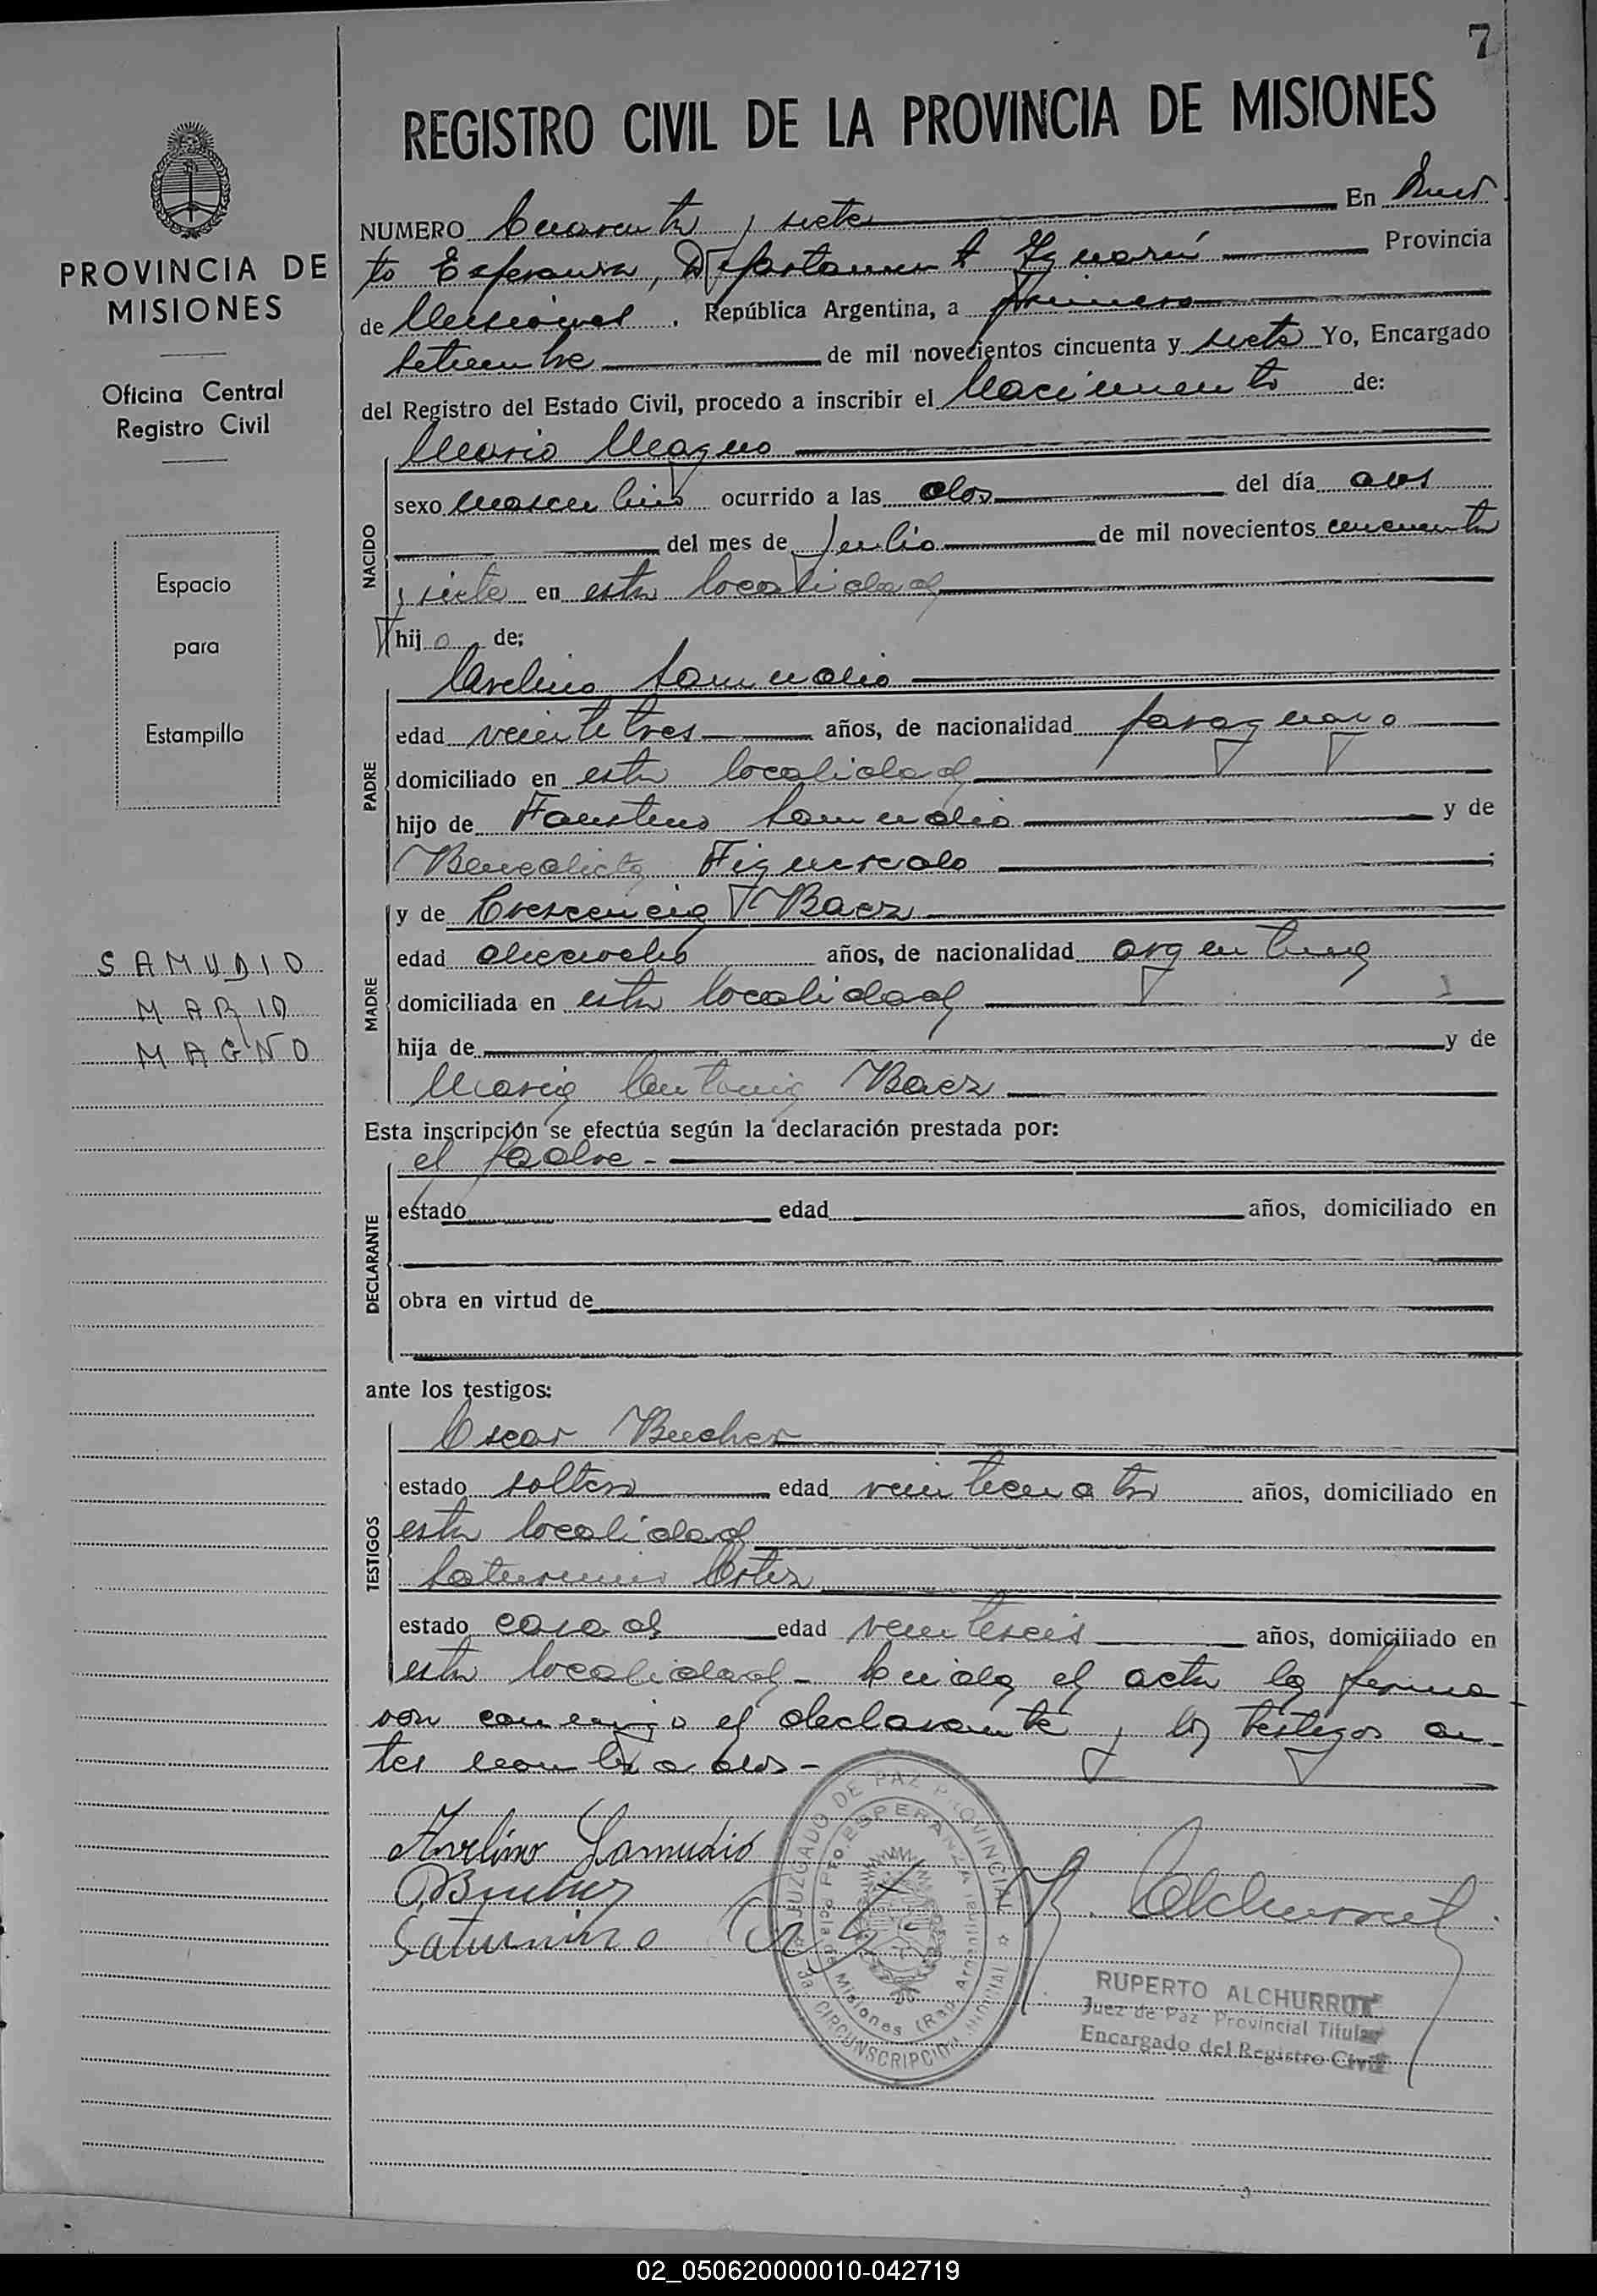 7
REGISTRO CIVIL DE LA PROVINCIA DE MISIONES
PROVINCIA DE
MISIONES
Oficina Central
Registro Civil
Espacio
para
Estampilla
SAMUDIO
MARIO
MAGNO
NUMERO Cuarenta y siete En Puer
to Esperanza, Departamento Iguazú Provincia
de Misiones, República Argentina, a primero
setiembre de mil novecientos cincuenta y siete Yo, Encargado
del Registro del Estado Civil, procedo a inscribir el Nacimiento de:
NACIDO
Mario Magno
sexo masculino ocurrido a las dos del día
del mes de Julio de mil novecientos cincuenta
y siete en esta localidad
hijo de:
PADRE
Avelino Samudio
edad veintitres años, de nacionalidad paraguayo
domiciliado en esta localidad
hijo de Faustino Samudio y de
Benedicta Figueredo
MADRE
y de Crescencia Baez
edad dieciocho años, de nacionalidad argentina
domiciliada en esta localidad
hija de y de
Maria Antonia Baez
Esta inscripción se efectúa según la declaración prestada por:
DECLARANTE
el padre -
estado edad años, domiciliado en
obra en virtud de
ante los testigos:
TESTIGOS
Oscar Bucher
estado soltero edad veinticuatro años, domiciliado en
esta localidad
Saturnino Ortiz
estado casado edad veintiseis años, domiciliado en
esta localidad - Leida el acta la firma
ron conmigo el declarante y los testigos an-
tes nombrados -
Avelino Samudio
OBucher
Saturnino
R. Alchurrut
JUZGADO DE PAZ PROVINCIAL
PTO. ESPERANZA
Pcia. de Misiones (Rep. Argentina)
3a. CIRCUNSCRIPCION JUDICIAL
RUPERTO ALCHURRUT
Juez de Paz Provincial Titular
Encargado del Registro Civil
02_050620000010-042719